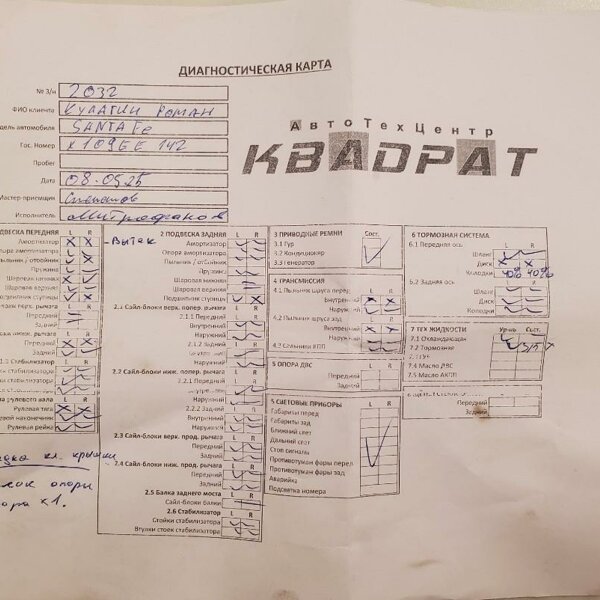 ДИАГНОСТИЧЕСКАЯ КАРТА
№ З/н 2032
ФИО клиента Кулагин Роман
дель автомобиля SANTA Fe
Гос. Номер х109 142
Пробег
Дата 08.05.25
Мастер-приемщик
Исполнитель Митрофанов
АвтоТехЦентр
КВАДРАТ
ДВЕСКА ПЕРЕДНЯЯ L R
Амортизатор X X
ора амортизатора
Пыльник / отбойник
Пружина
Шаровая нижняя
Шаровая верхняя
Подшипник ступицы
Передний
Задний
Передний
Задний
Стабилизатор
рулевого вала L R
Рулевая тяга X X
евой наконечник
Рулевая рейка
кл. крышки
опоры
ора х1.
2 ПОДВЕСКА ЗАДНЯЯ L R
-Вытек
Амортизатор
Опора амортизатора
Пыльник / отбойник
Пружина
Шаровая нижняя
Шаровая верхняя
Подшипник ступицы X
2.1 Сайл-блоки верх. попер. рычаг
2.1.1 Передний L R
Внутренний
Наружный
Внутренний
Наружный
2.2 Сайл-блоки ниж. попер. рычаг
2.2.1 Передний L R
Внутренний
Наружный
2.2.2 Задний
Внутренний
Наружный
2.3 Сайл-блоки верх. прод. рычага
Передний
Задний
2.4 Сайл-блоки ниж. прод. рычага
Передний
Задний
2.5 Балка заднего моста L R
Сайл-блоки балки
2.6 Стабилизатор L R
Стойки стабилизатора
Втулки стоек стабилизатора
3 ПРИВОДНЫЕ РЕМНИ Сост.
3.1 Гур
3.2 Кондиционер
3.3 Генератор
4 ТРАНСМИССИЯ L R
4.1 Пыльник шруса перед
Внутренний X X
Наружный
4.2 Пыльник шруса зад
Внутренний X X
Наружный
4.3 Сальники КПП
5 ОПОРА ДВС L R
Передний
Задний
5 СВЕТОВЫЕ ПРИБОРЫ L R
Габариты перед
Габариты зад
Ближний свет
Дальний свет
Стоп сигналы
Противотуман фары перед
Противотуман фары зад
Аварийка
Подсветка номера
6 ТОРМОЗНАЯ СИСТЕМА
6.1 Передняя ось L R
Шланг
Диск X X
Колодки 40% 40%
5.2 Задняя ось L R
Шланг
Диск
Колодки
7 ТЕХ ЖИДКОСТИ Ур-нь Сост.
7.1 Охлаждающая
7.2 Тормозная
7.4 Масло ДВС
7.5 Масло АКПП
L R
Передний
Задний